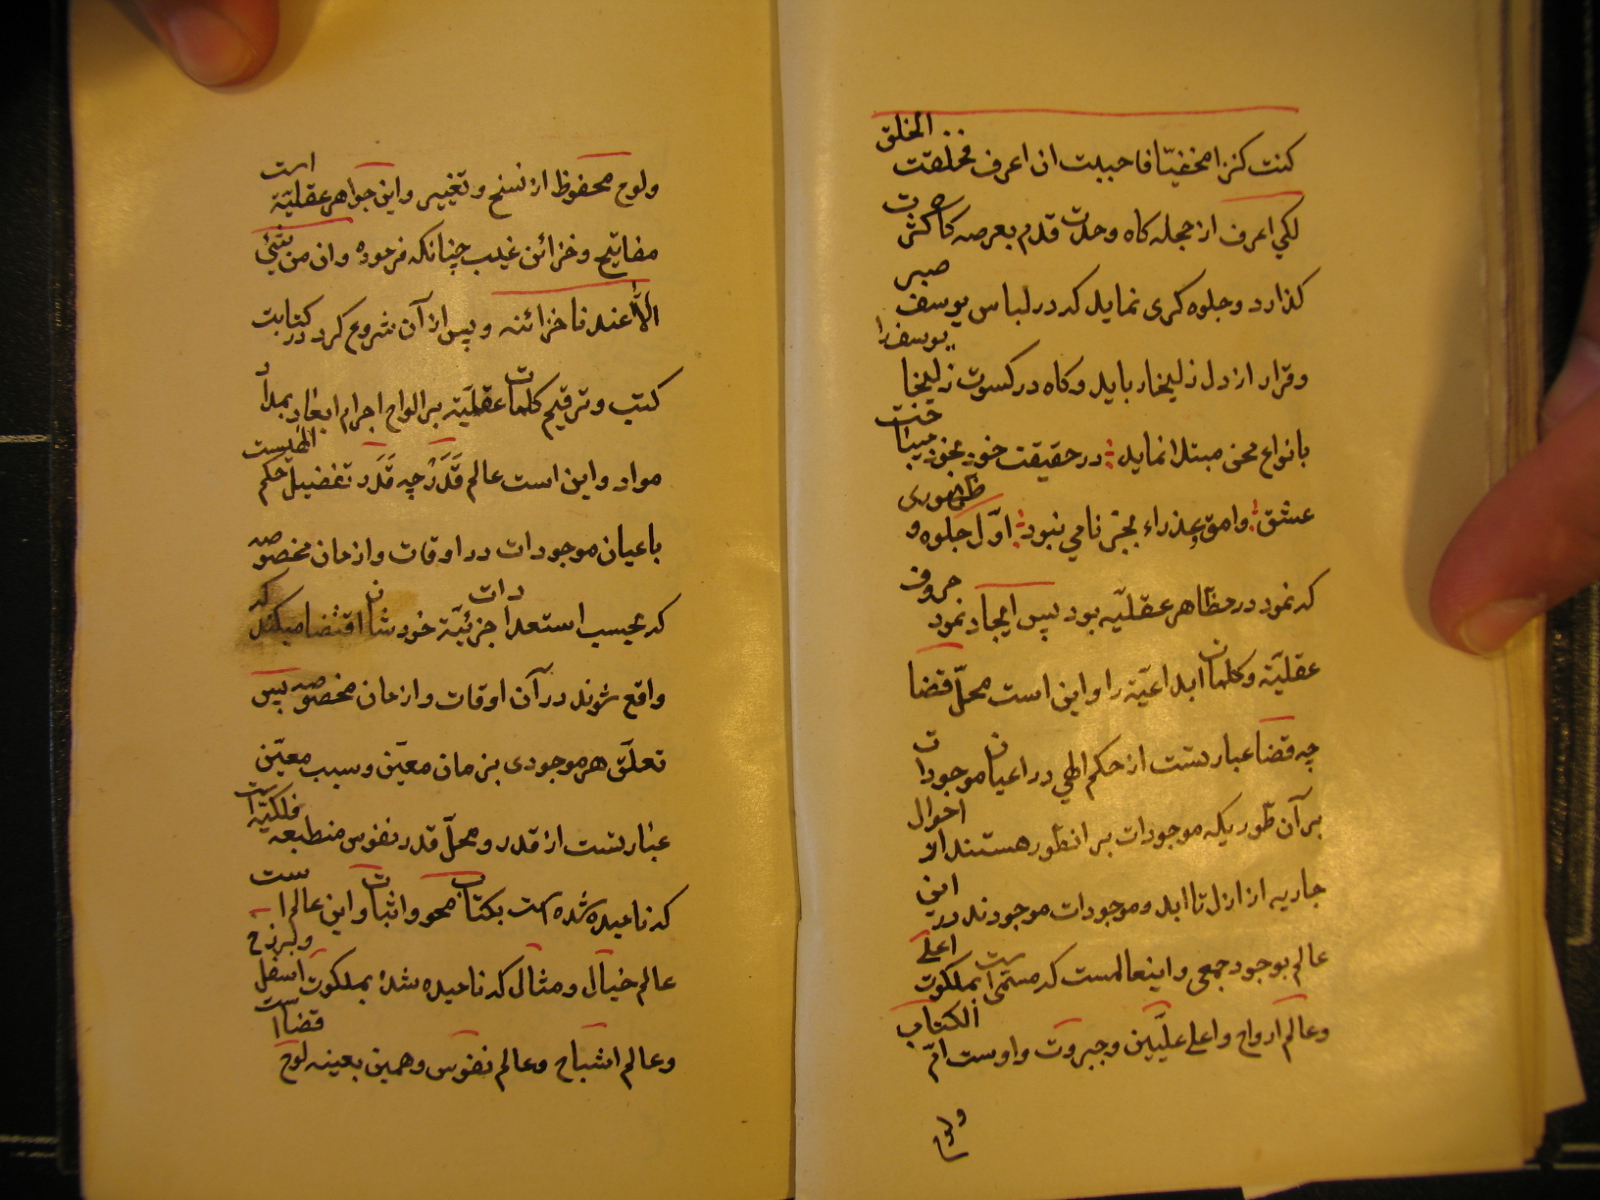 كنت كنزا مخفيّا فاحببت ان اعرف فخلقت الخلق
لكي اعرف از حجله كاه وحدت قدم بعرصه كاه كثرت
كذارد و جلوه كرى نمايد كه در لباس يوسف صبر
و قرار از دل زليخا ربايد و كاه در كسوت زليخا يوسف را
بانواع محن مبتلا نمايد در حقيقت خود بخود ميباخت
عشق وامق و عذراء بجز نامي نبود اوّل جلوه و ظهورى
كه نمود در مظاهر عقليّه بود پس ايجاد نمود حروف
عقليّه و كلمات ابداعيّه را و اين است محلّ قضا
چه قضا عبارتست از حكم الهي در اعيان موجودات
بر آن طوريكه موجودات بر انطور هستند از احوال
جاريه از ازل تا ابد و موجودات موجودند در اين
عالم بوجود جمعى و اينعالمست كه مسمى است بملكوت اعلى
و عالم ارواح و اعلى عليّين و جبروت و اوست امّ الكتاب
ولوح
ولوح محفوظ از نسخ و تغيير و اين جواهر عقليّة است
مفاتيح و خزائن غيب چنانكه فرموده و ان من شئ
الّا عندنا خزائنه و پس از آن شروع كرد در كتابت
كتب و ترقيم كلمات عقليّه بر الواح اجرام ابعاد بمداد
مواد و اين است عالم قَدَر چه قَدَر تفضيل حكم الهيست
باعيان موجودات در اوقات و ازمان مخصوصه
كه بحسب استعدادات جزئيّة خودشان اقتضا ميكنند كه
واقع شوند در آن اوقات و ازمان مخصوصه پس
تعلّق هر موجودى بزمان معيّن و سبب معيّن
عبارتست از قدر و محلّ قدر نفوس منطبعه فلكيّه است
كه ناميده شده است بكتاب محو و اثبات و اين عالم است
عالم خيال و مثال كه ناميده شده بملكوت اسفل و برزخ
و عالم اشباح و عالم نفوس و همين بعينه لوح قضا است